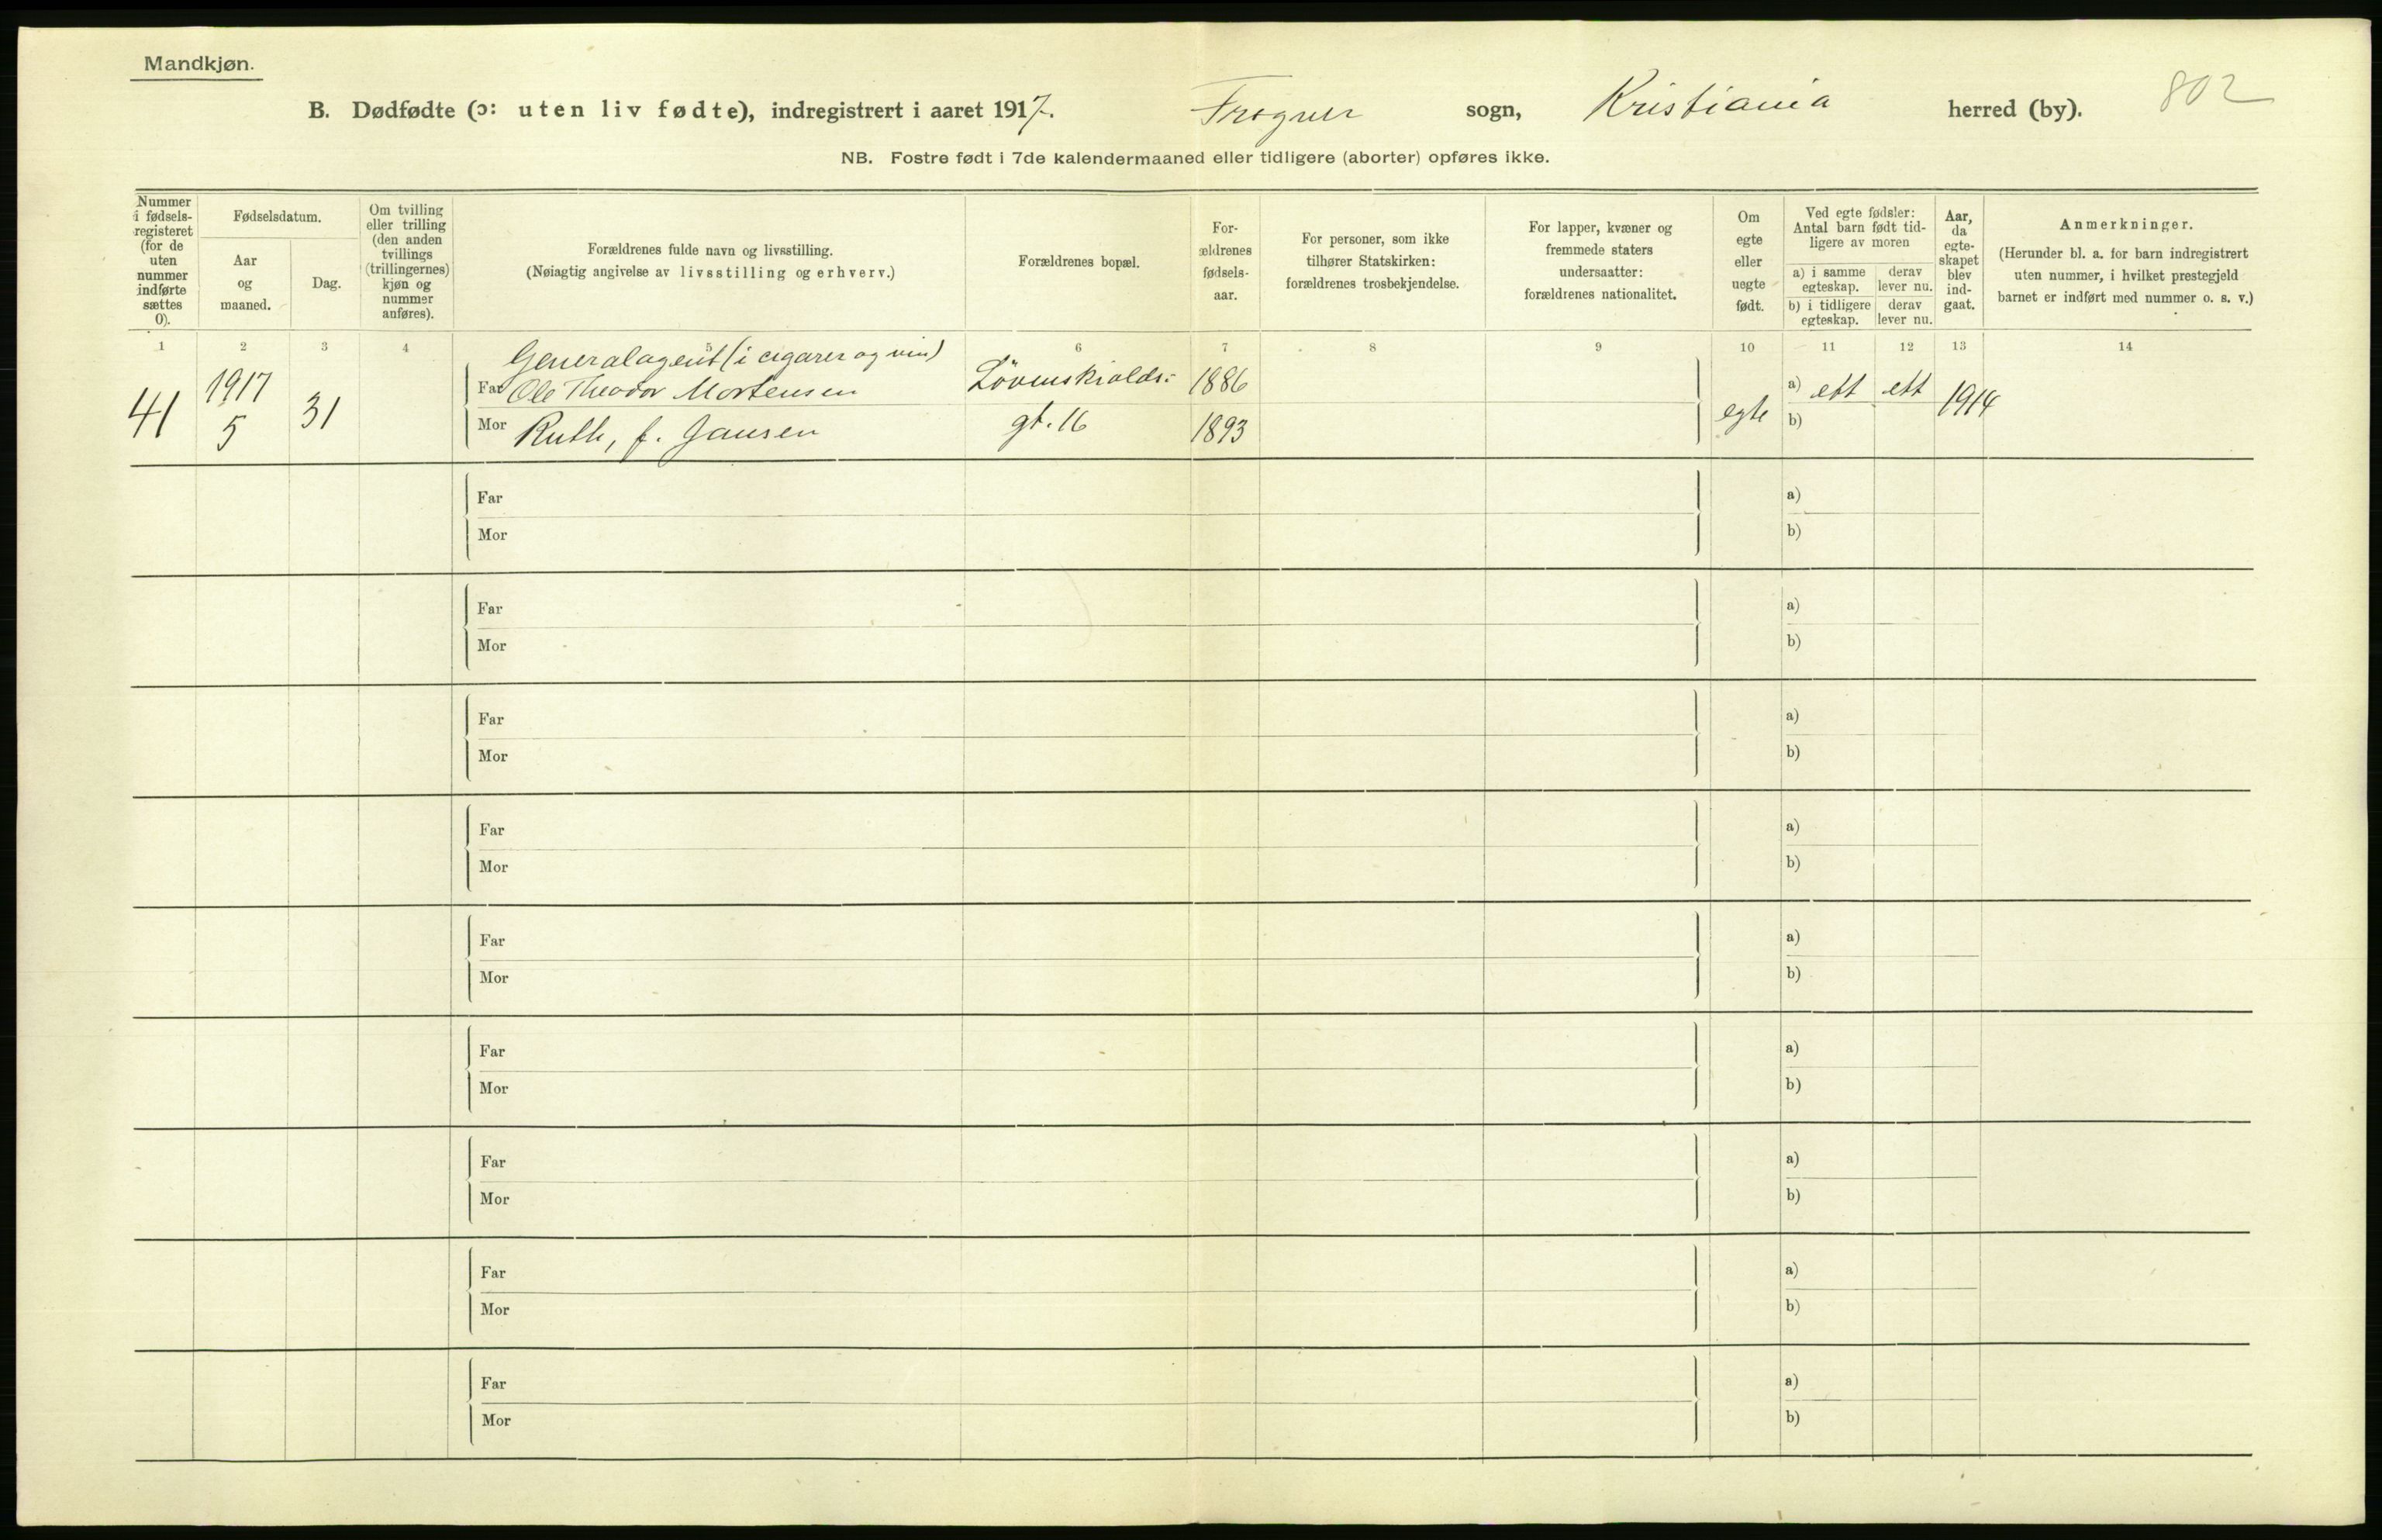 Mandkjøn.
B. Dødfødte (ɔ: uten liv fødte), indregistrert i aaret 1917. Frogner sogn, Kristiania herred (by). 802
NB. Fostre født i 7de kalendermaaned eller tidligere (aborter) opføres ikke.
Nummer i fødselsregisteret (for de uten nummer indførte sættes 0).
Fødselsdatum.
Aar og maaned.
Dag.
Om tvilling eller trilling (den anden tvillings (trillingernes) kjøn og nummer anføres).
Forældrenes fulde navn og livsstilling.
(Nøiagtig angivelse av livsstilling og erhverv.)
Forældrenes bopæl.
Forældrenes fødselsaar.
For personer, som ikke tilhører Statskirken: forældrenes trosbekjendelse.
For lapper, kvæner og fremmede staters undersaatter: forældrenes nationalitet.
Om egte eller uegte født.
Ved egte fødsler: Antal barn født tidligere av moren
a) i samme egteskap. derav lever nu.
b) i tidligere egteskap. derav lever nu.
Aar, da egteskapet blev indgaat.
Anmerkninger.
(Herunder bl. a. for barn indregistrert uten nummer, i hvilket prestegjeld barnet er indført med nummer o. s. v.)
1 2 3 4 5 6 7 8 9 10 11 12 13 14
Generalagent (i cigarer og vin)
41 1917 5 31 Far Ole Theodor Mortensen Lövenskiolds: 1886 egte a) ett ett 1914
Mor Ruth, f. Jansen gt. 16 1893 b)
Far a)
Mor b)
Far a)
Mor b)
Far a)
Mor b)
Far a)
Mor b)
Far a)
Mor b)
Far a)
Mor b)
Far a)
Mor b)
Far a)
Mor b)
Far a)
Mor b)